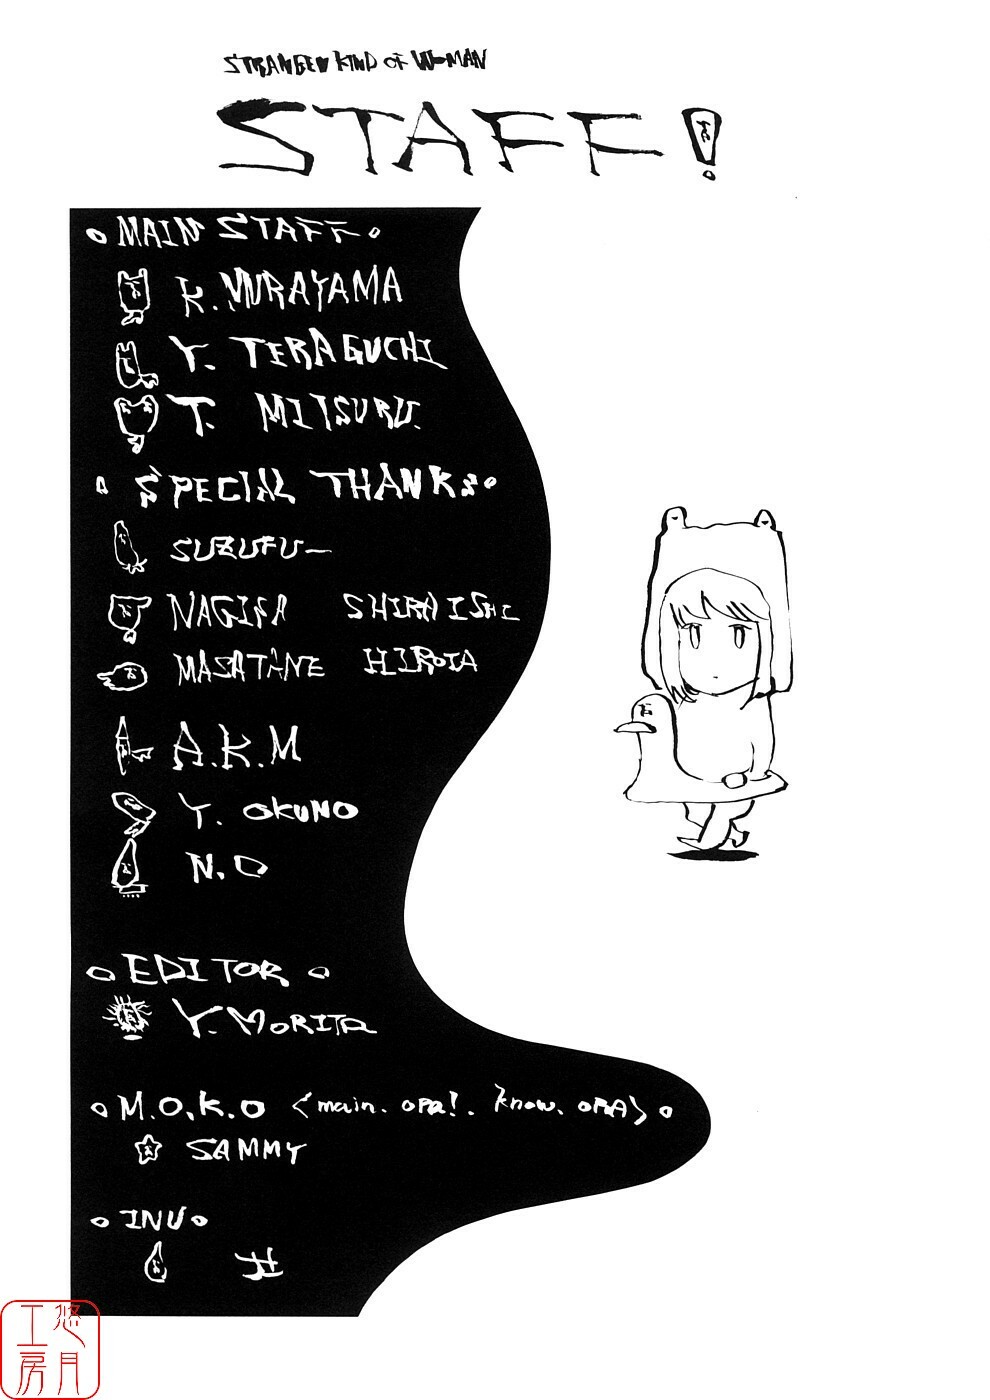 STRANGE KIND OF WOMAN
STAFF!
MAIN STAFF
K. MURAYAMA
Y. TERAGUCHI
T. MITSURU.
SPECIAL THANKS
SUZUFU—
NAGISA SHIRAISHI
MASATANE HIROTA
A.K.M
Y. OKUNO
N.O
EDITOR
Y. MORITA
M.O.K.O <main. OPA!. know. OPA>
SAMMY
INU
井
悠月
工房